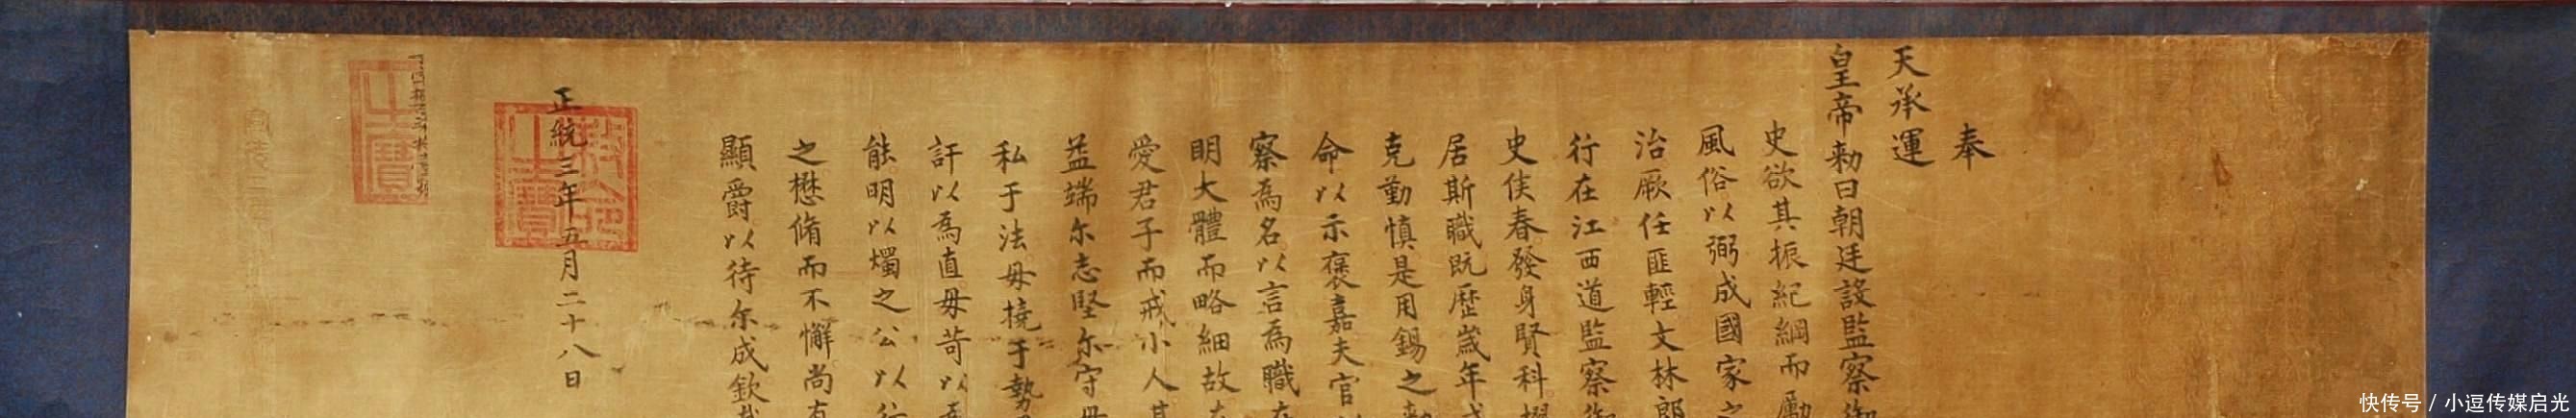 奉
天承運
皇帝勑曰朝廷設監察御
史欲其振紀綱而勵
風俗以弼成國家之
治厥任匪輕文林郎
行在江西道監察御
史侯春發身賢科擢
居斯職既歷歲年式
克勤慎是用錫之勑
命以示褒嘉夫官以
察為名以言為職在
明大體而略細故在
愛君子而戒小人其
益端尔志堅尔守毋
私于法毋撓于勢
訐以為直毋苛以為
能明以燭之公以行
之懋脩而不懈尚有
顯爵以待尔成欽哉
正統三年五月二十八日
之寶
快传号 / 小逗传媒启光